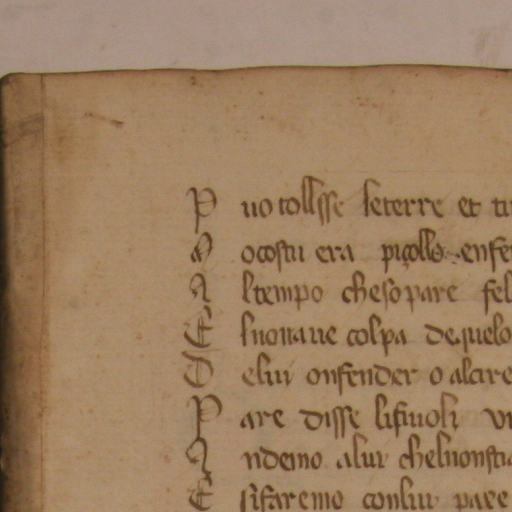 P uo tollsse leterre et tu
M ocostu era picollo enfe
A ltempo chesopare fel
E lnonaue colpa dequelo
D elui onfender o alcire
P are disse lifiuoli vu
A ndemo alui chelnonstia
E sifaremo conlui pare